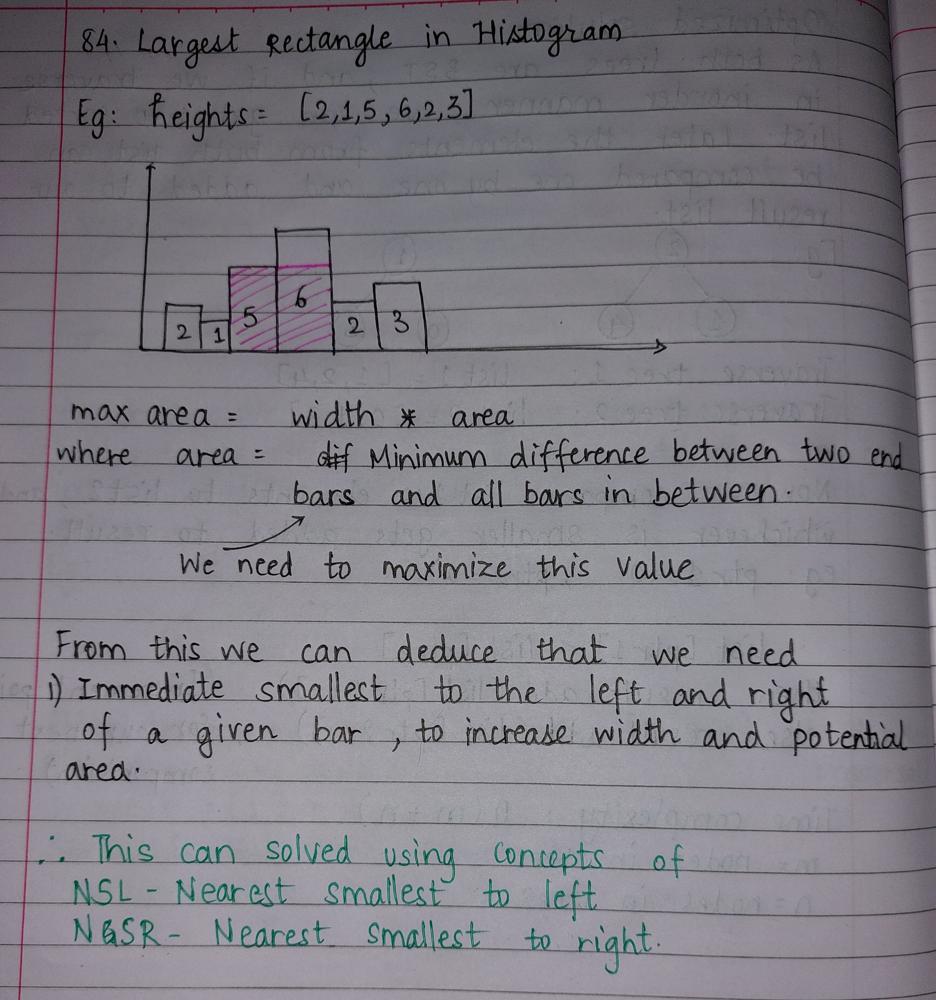 84. Largest Rectangle in Histogram
Eg: heights = [2,1,5,6,2,3]
2 1 5 6 2 3
max area = width * area
where area = Minimum difference between two end
bars and all bars in between.
We need to maximize this value
From this we can deduce that we need
i) Immediate smallest to the left and right
of a given bar, to increase width and potential
area.
∴ This can solved using concepts of
NSL - Nearest smallest to left
NSR - Nearest smallest to right.